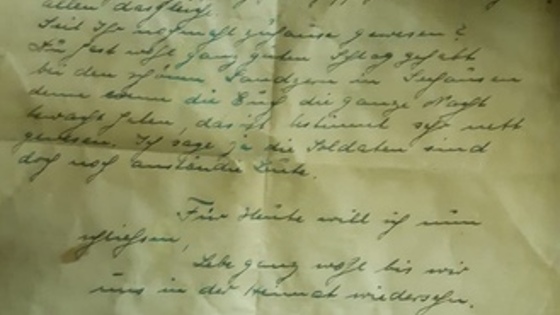 allen dasgleich
Seid Ihr nochmals zuhause gewesen?
Du hast wohl ganz guten Schlaf gehabt
bei den schönen Landsern in
denn wenn die Euch die ganze Nacht
bewacht haben, das ist bestimmt sehr nett
gewesen. Ich sage ja die Soldaten sind
doch noch anständie Leute.
Für Heute will ich nun
schliessen,
Lebe ganz wohl bis wir
uns in der Heimat wiedersehn.